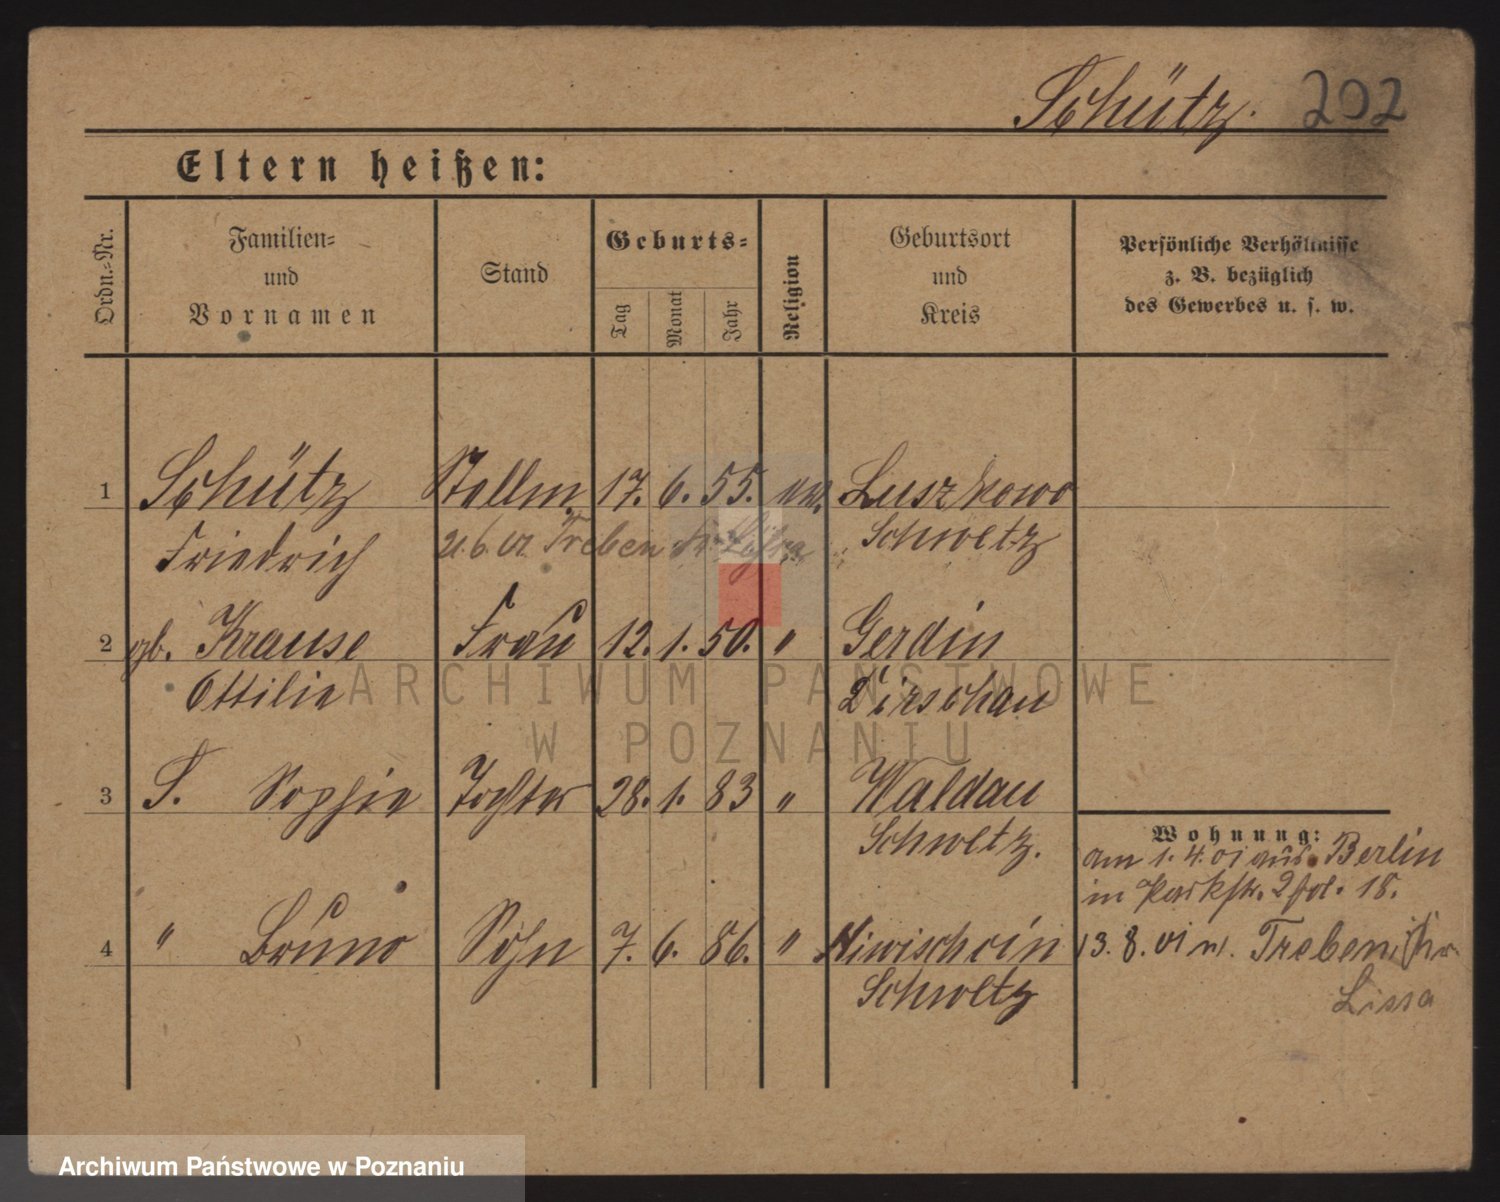 Schütz. 202
Eltern heißen:
Ordn.=Nr.
Familien=
und
Vornamen
Stand
Geburts=
Tag
Monat
Jahr
Religion
Geburtsort
und
Kreis
Persönliche Verhältnisse
z. B. bezüglich
des Gewerbes u. s. w.
1 Schütz Stellm. 17. 6. 55. ew. Luszkowo
Friedrich 21.6.01 Treben Kr. Lissa Schwetz
2 gb. Krause Frau 12. 1. 50. " Gerdin
Ottilie Dirschau
3 S. Sophie Tochter 28. 1. 83 " Waldau
Schwetz.
Wohnung:
am 1. 4. 01 aus Berlin
in Parkstr. 2 pol. 18.
4 " Bruno Sohn 7. 6. 86. " Schwetz
13. 8. 01 n. Treben Kr.
Lissa
ARCHIWUM PAŃSTWOWE
W POZNANIU
Archiwum Państwowe w Poznaniu